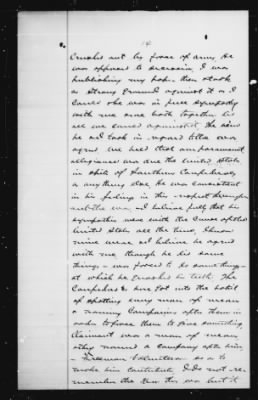 14
Crushed out by force of arms. He
was opposed to secession. I was
publishing my paper then & took
a strong ground against it and I
and he was in full sympathy
with me
all we argued against. The
he and I took in regard to the war
agree. We held that our paramount
allegiance was due the United States
in spite of Southern Confederacy
or anything else. He was consistent
in his feeling in this respect through
out the war, and I believe fully that his
sympathies were with the cause of the
United States all the time. I know
mine were and I believe he agreed
with me though he did some
things - was forced to do something
at which he gnashed his teeth. The
Confederates here got into the habit
of spotting every man of means
& naming Companies after them in
order to force them to give something
Claimant was a man of means
they named a company after him,
- Freeman Volunteers so as to
make him contribute. I do not re-
member the time this was but it